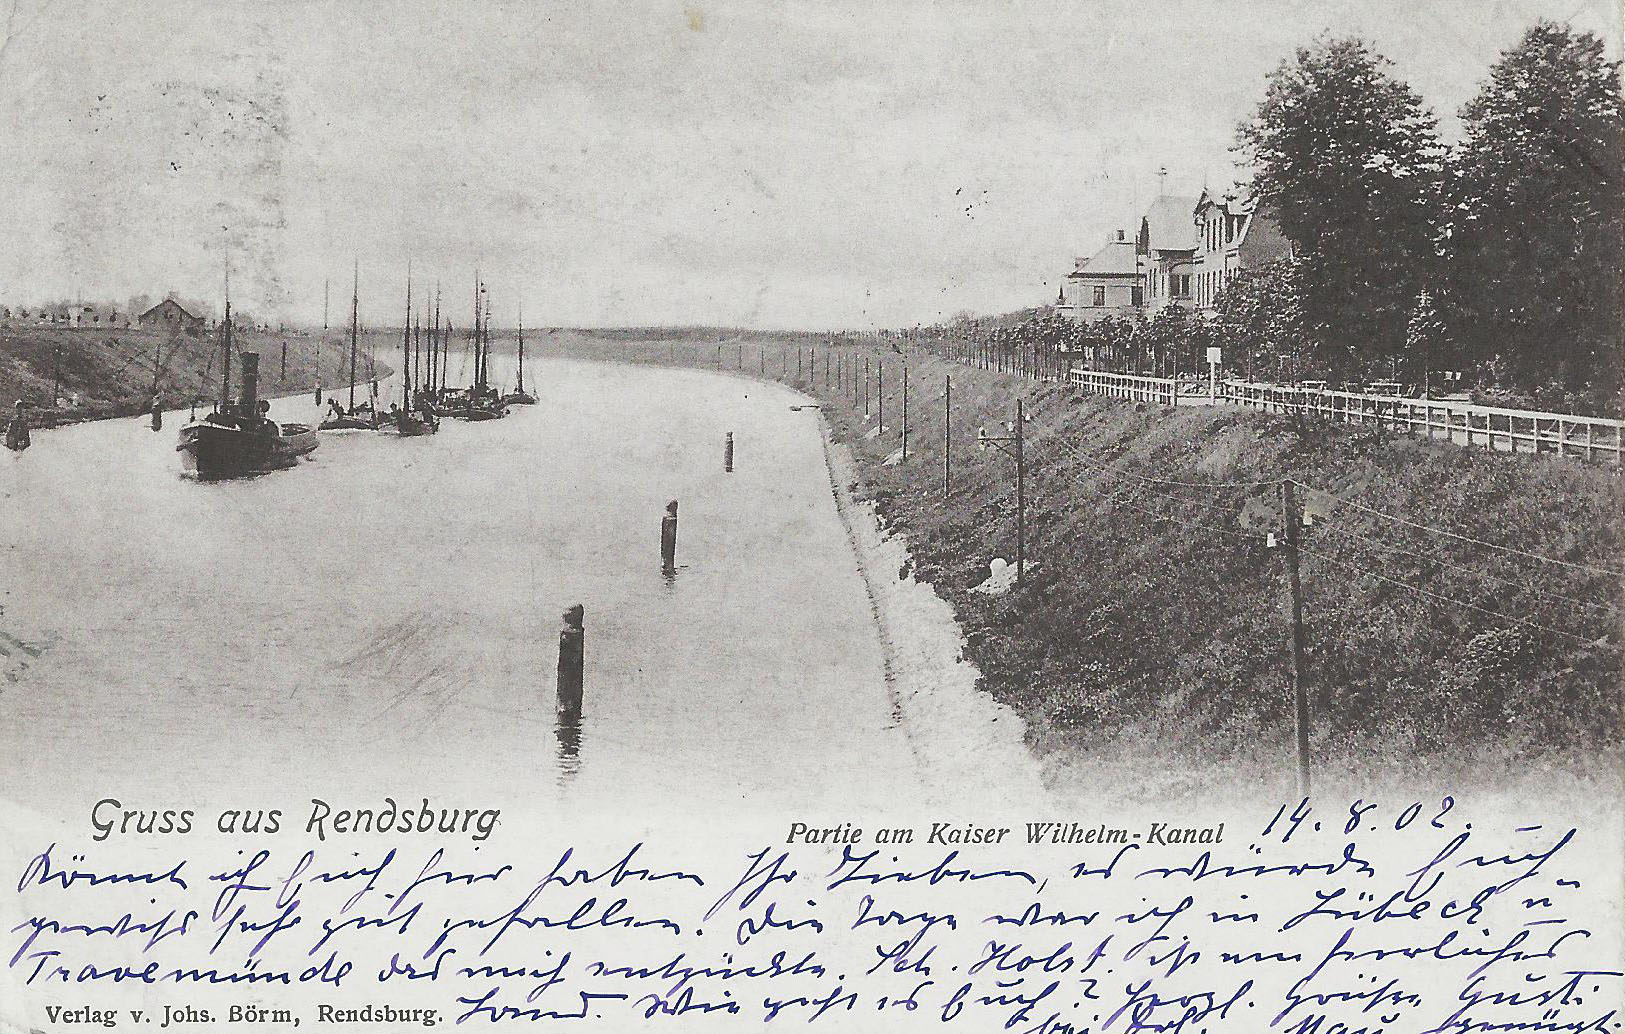 Gruss aus Rendsburg
Partie am Kaiser Wilhelm-Kanal
14. 8. 02.
Könnt ich Euch hier haben Ihr Lieben, es würde Euch
gewiss sehr gut gefallen. Die Tage war ich in Lübeck u.
Travemünde das mich entzückte. Sch. Holst. ist ein herrliches
Land. Wie geht es Euch? Herzl. Grüße Gusti
bei
Verlag v. Johs. Börm, Rendsburg.